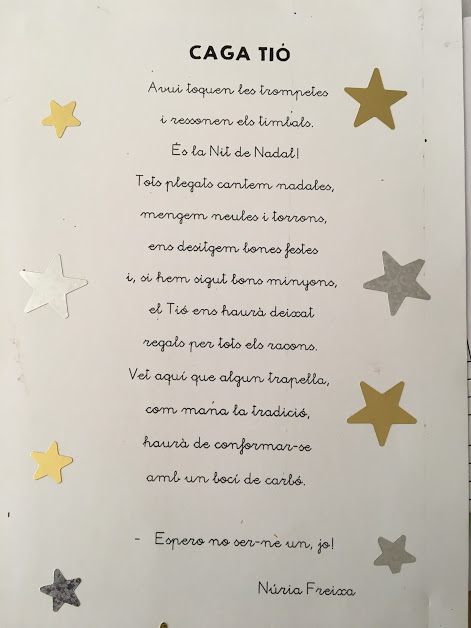 CAGA TIÓ
Avui toquen les trompetes
i ressonen els timbals.
És la Nit de Nadal!
Tots plegats cantem nadales,
mengem neules i torrons,
ens desitgem bones festes
i, si hem sigut bons minyons,
el Tió ens haurà deixat
regals per tots els racons.
Vet aquí que algun trapella,
com mana la tradició,
haurà de conformar-se
amb un bocí de carbó.
- Espero no ser-nè un, jo!
Núria Freixa